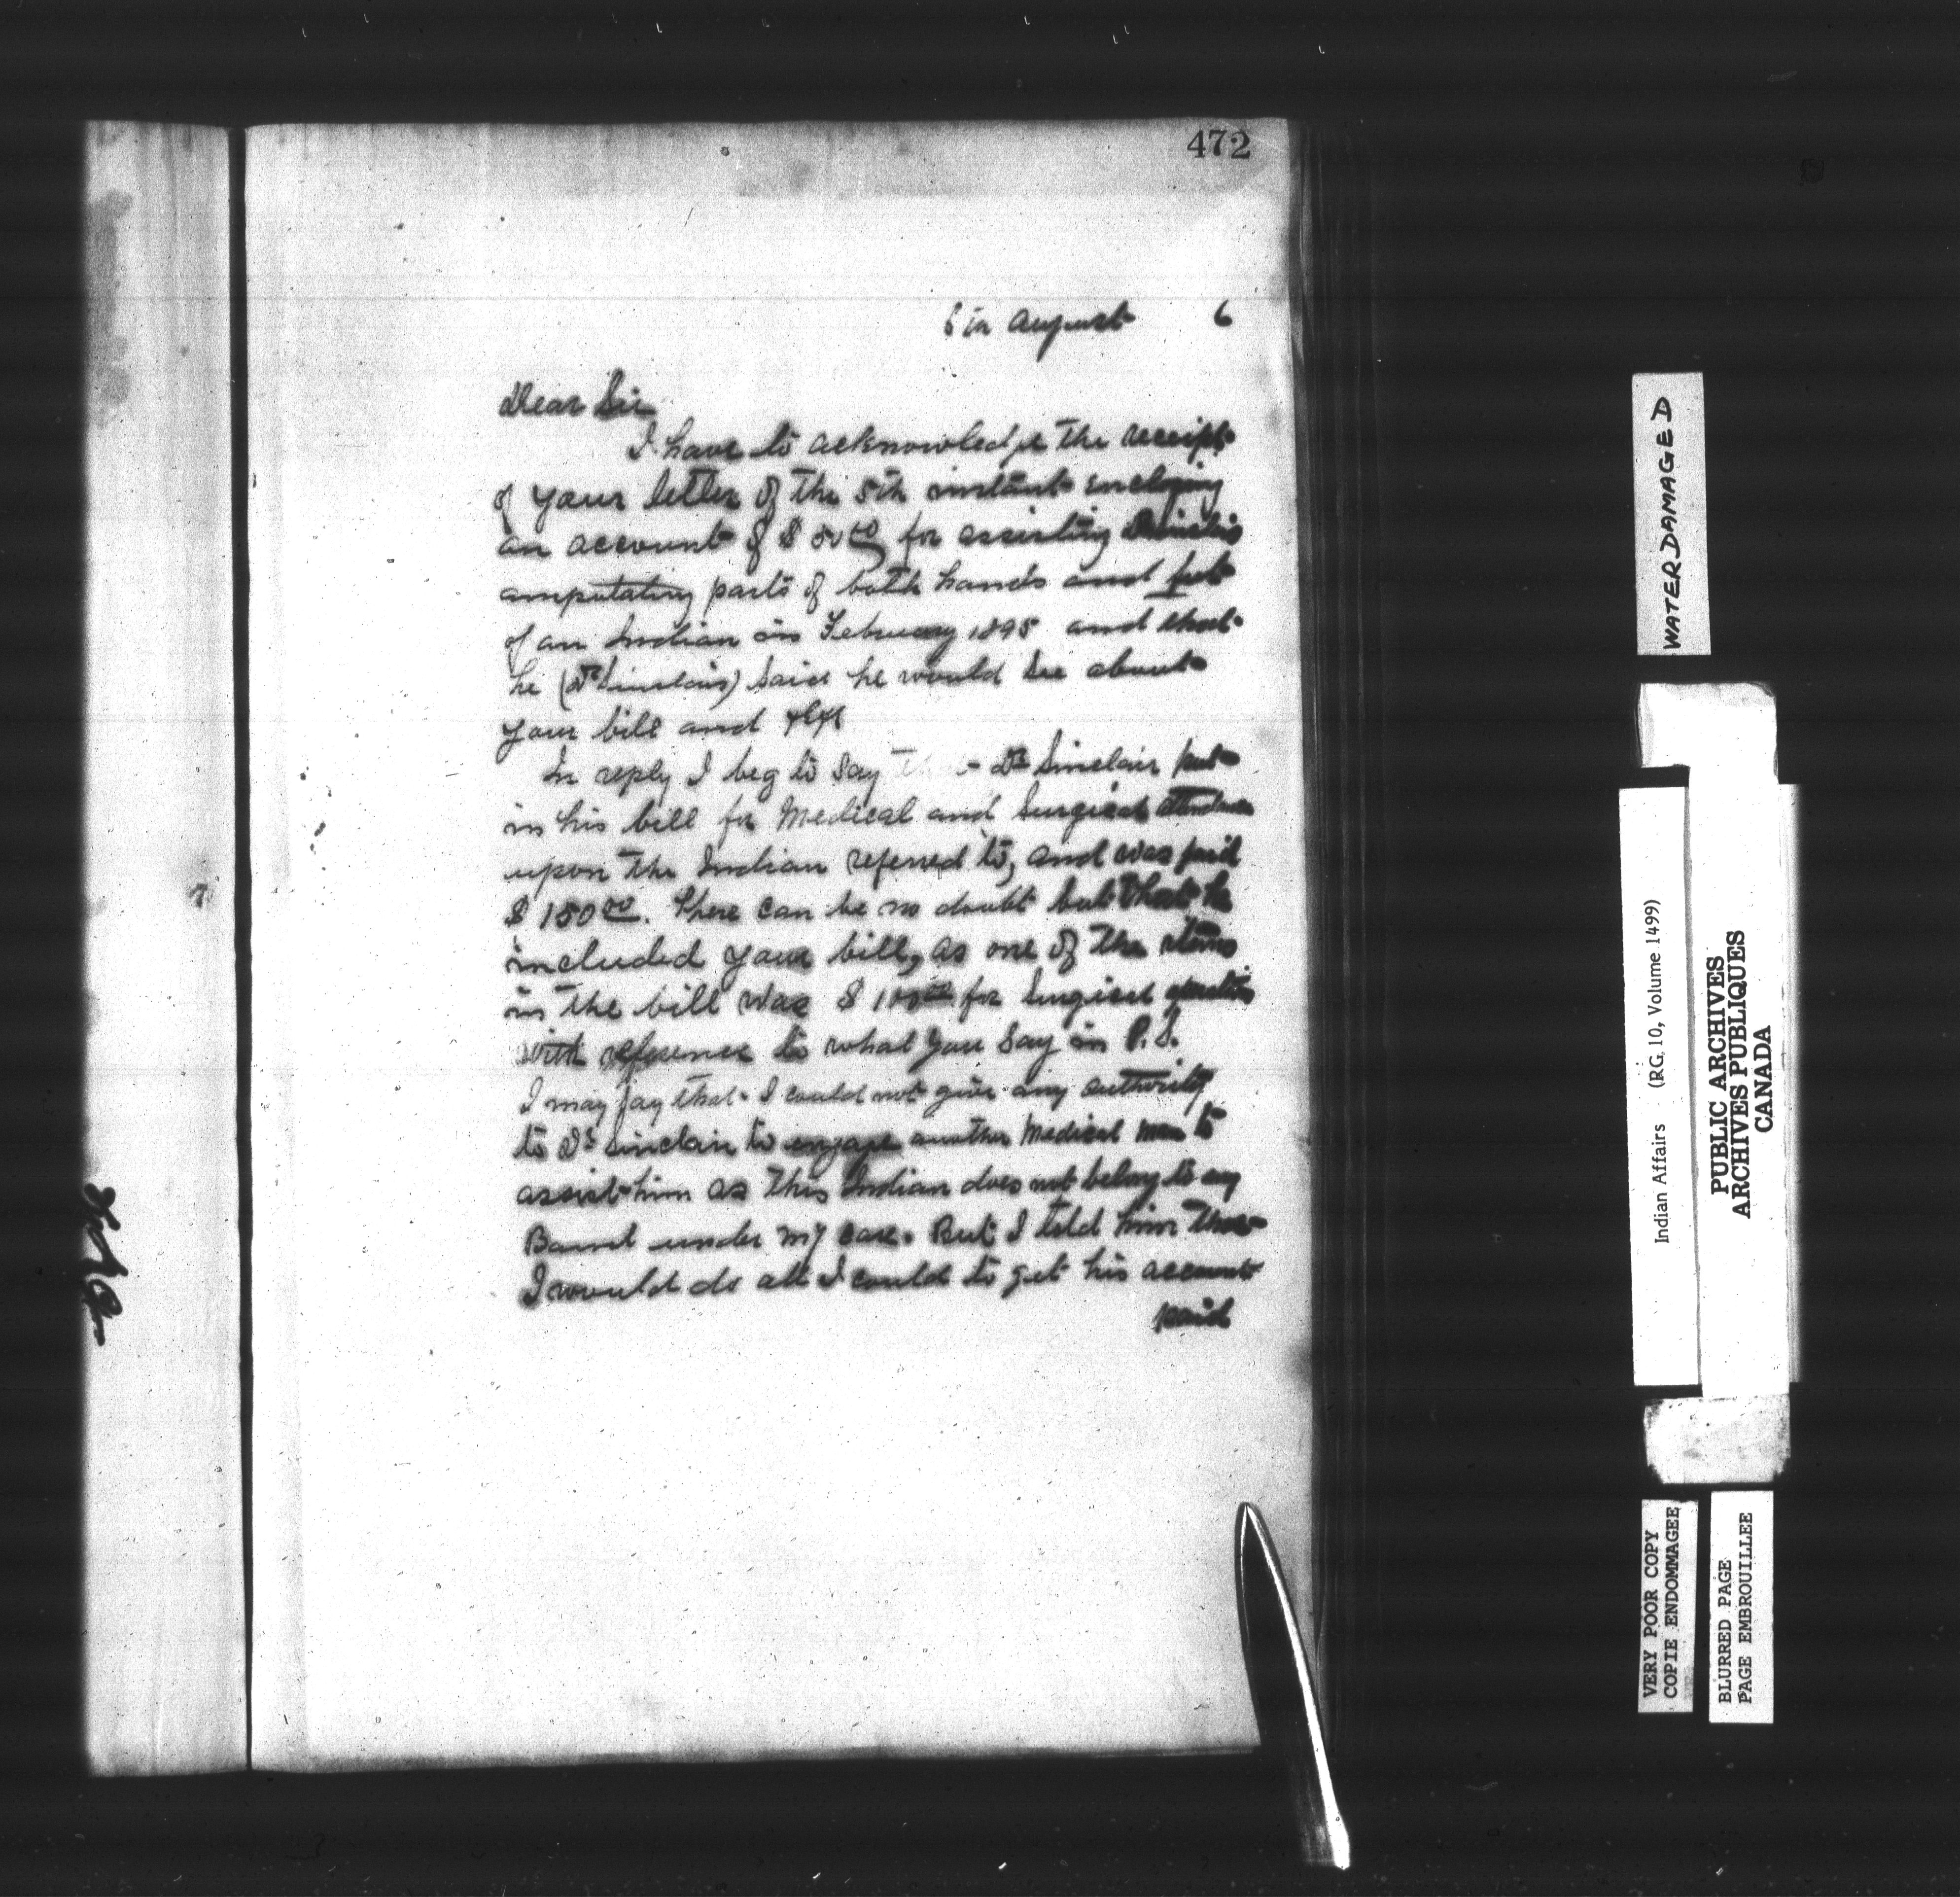 472
6th August 6
Dear Sir
I have to acknowledge the receipt
of your letter of the 5th instant enclosing
an account of $ 50.00 for assisting Dr Sinclair
amputating parts of both hands and feet
of an Indian in February 1895 and that
he (Dr Sinclair) said he would see about
your bill and
In reply I beg to say that Dr Sinclair put
in his bill for Medical and Surgical attendance
upon the Indian referred to, and was paid
$ 150.00. There can be no doubt but that he
included your bill, as one of the items
in the bill was $ 100.00 for Surgical operation
with reference to what you say in P.S.
I may say that I could not give any authority
to Dr Sinclair to engage another Medical man to
assist him as this Indian does not belong to any
Band under my care. But I told him that
I would do all I could to get his account
paid
WATERDAMAGED
Indian Affairs (RG. 10, Volume 1499)
PUBLIC ARCHIVES
ARCHIVES PUBLIQUES
CANADA
VERY POOR COPY
COPIE ENDOMMAGEE
BLURRED PAGE
PAGE EMBROUILLEE